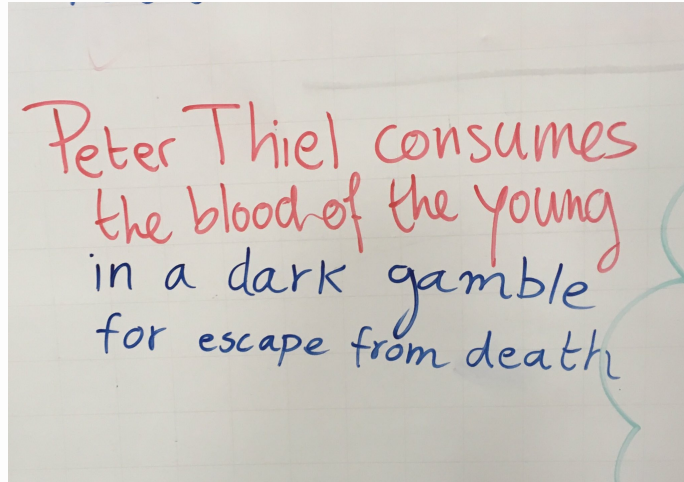 Peter Thiel consumes
the blood of the young
in a dark gamble
for escape from death